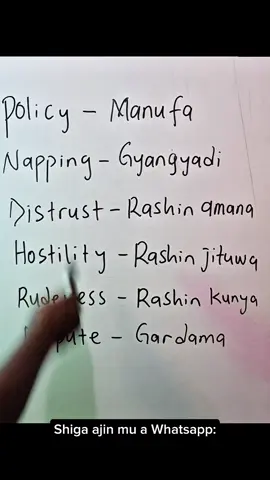 Policy – Manufa
Napping – Gyangyadi
Distrust – Rashin amana
Hostility – Rashin jituwa
Rudeness – Rashin kunya
– Gardama
Shiga ajin mu a Whatsapp: